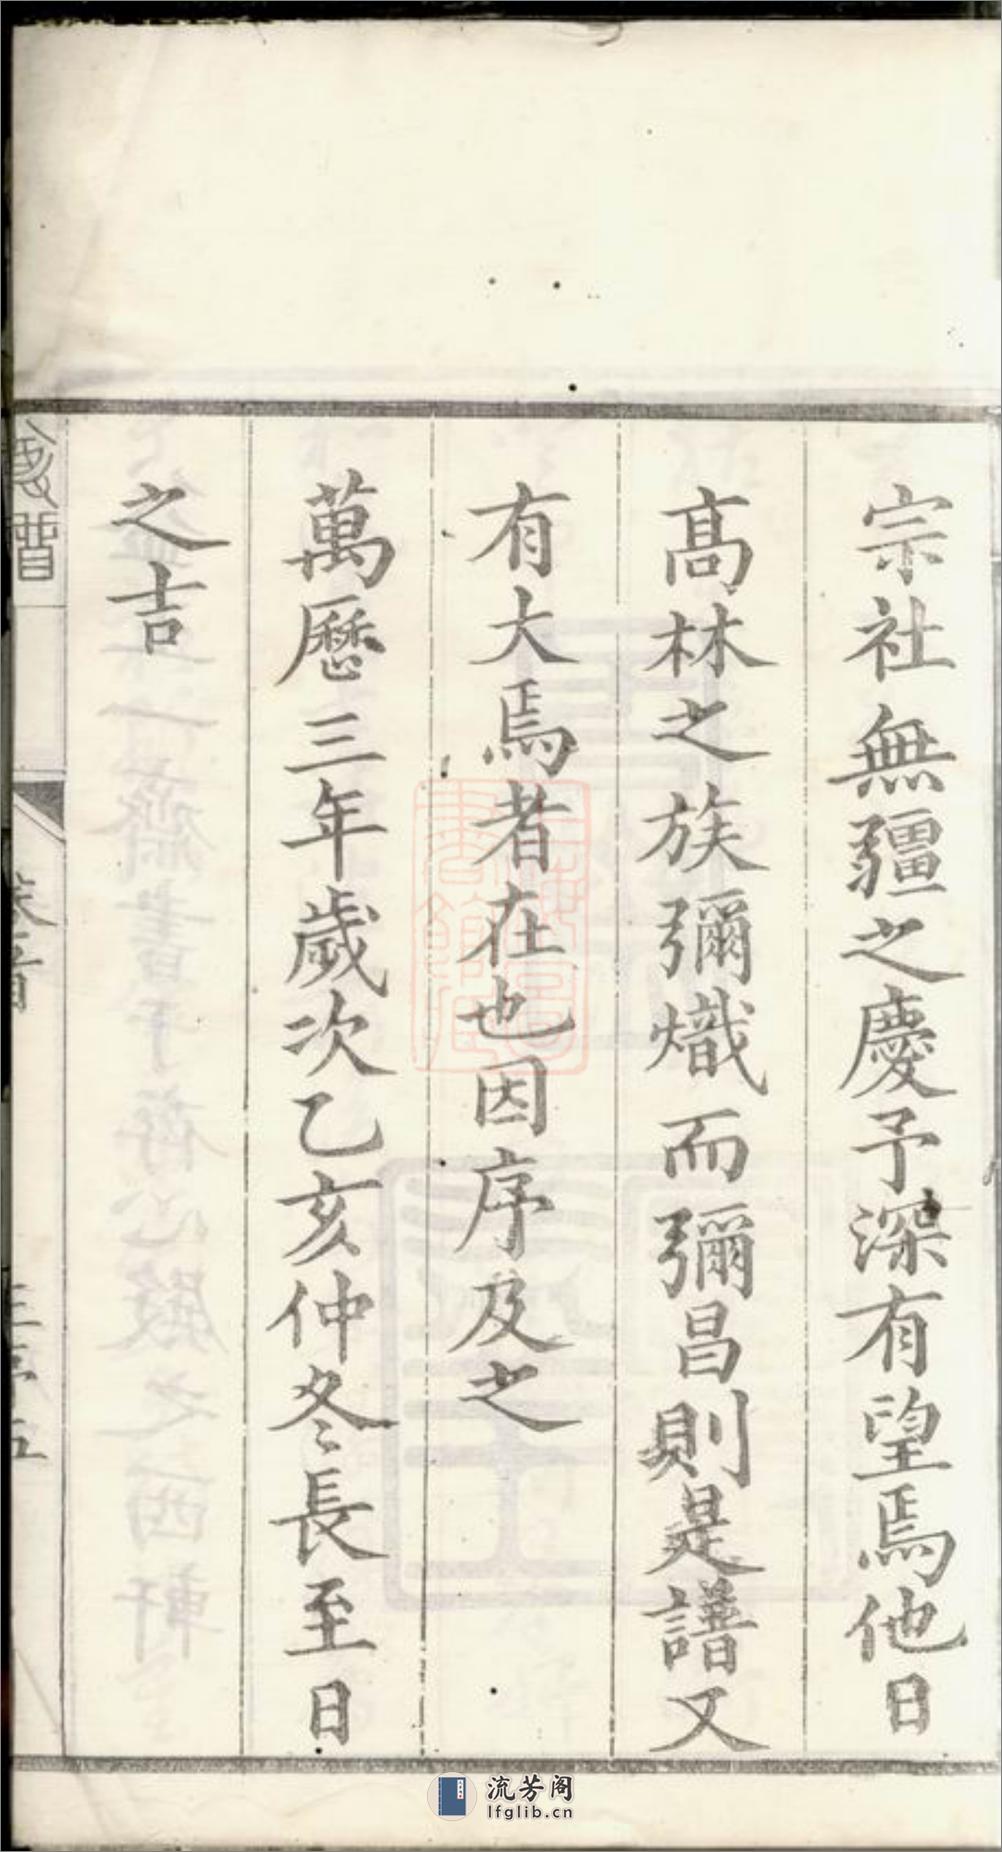 宗社無疆之慶予深有望焉他日
髙林之族彌熾而彌昌則是譜又
有大焉者在也因序及之
萬曆三年歲次乙亥仲冬長至日
之吉
卷首
流芳阁
lfglib.cn